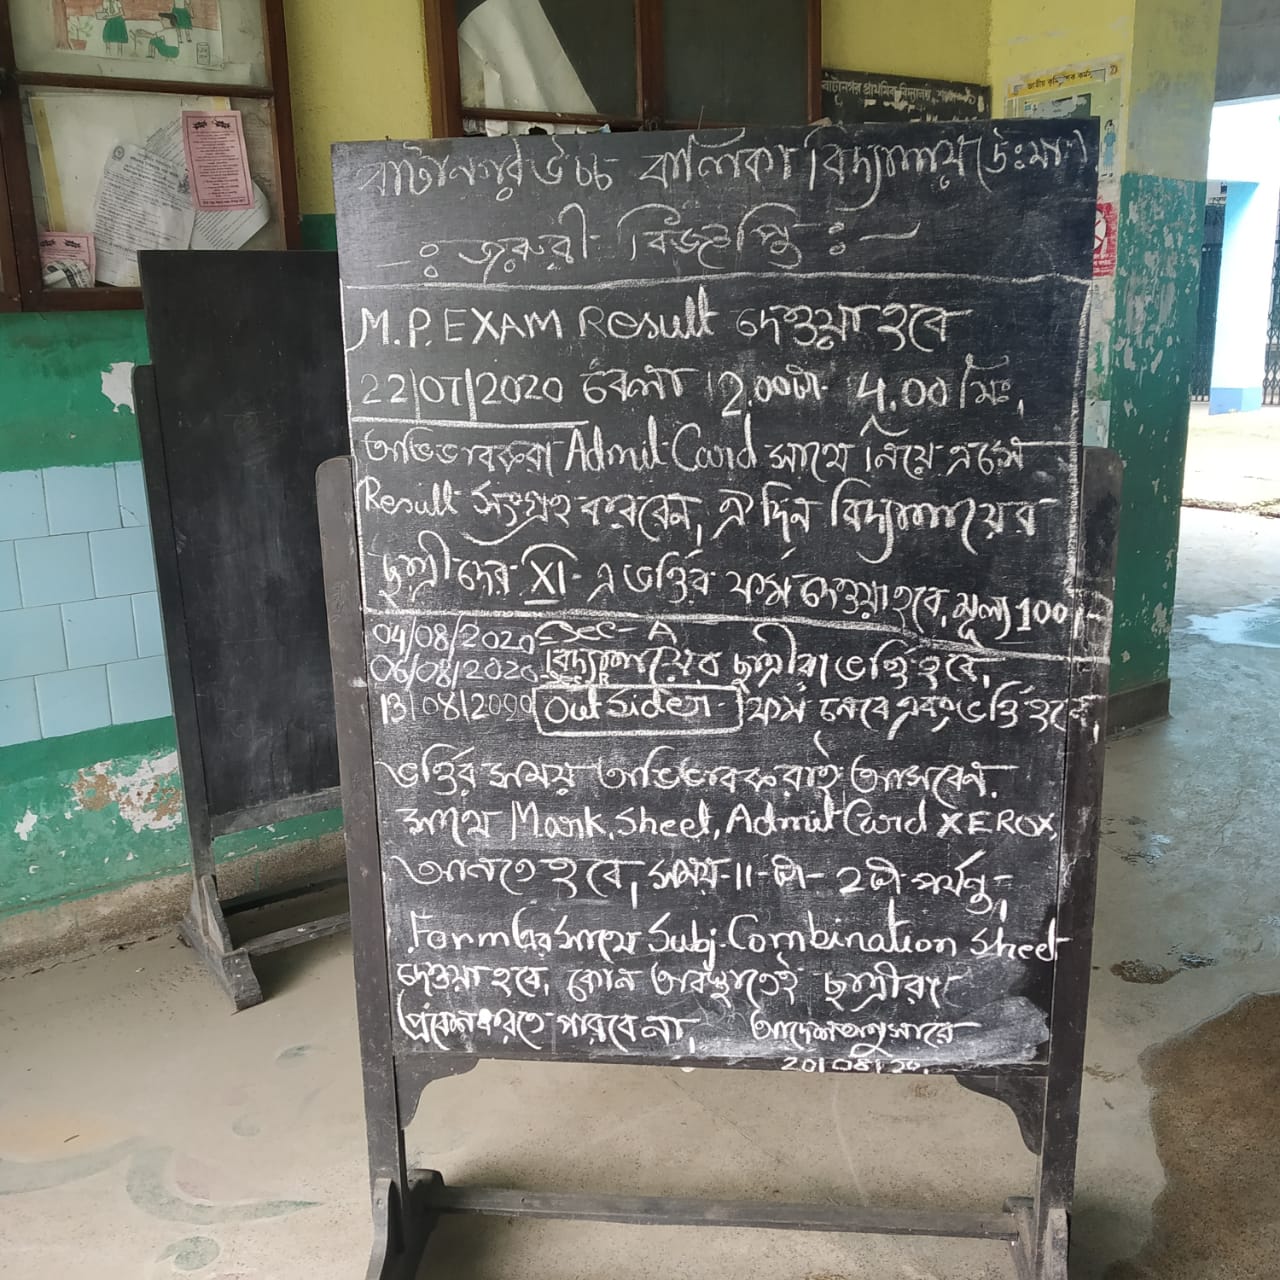 বাটানগর উচ্চ বালিকা বিদ্যালয় (উঃ মাঃ)
-: জরুরী বিজ্ঞপ্তি :-
M.P. EXAM Result দেওয়া হবে
22/07/2020 বেলা 12.00টা- 4.00 মিঃ,
অভিভাবকরা Admit Card সাথে নিয়ে এসে
Result সংগ্রহ করবেন, ঐ দিন বিদ্যালয়ের
ছাত্রীদের XI- এ ভর্ত্তির ফর্ম দেওয়া হবে, মূল্য 100/-
04/08/2020 Sec-A
06/08/2020 বিদ্যালয়ের ছাত্রীরা ভর্ত্তি হবে,
13/08/2020 Out Sider- ফর্ম নেবে এবং ভর্ত্তি হবে,
ভর্ত্তির সময় অভিভাবকরাই আসবেন,
সাথে Mark Sheet, Admit Card XEROX,
আনতে হবে, সময়-11-টা- 2টা পর্যন্ত,
Form এর সাথে Subj. Combination Sheet
দেওয়া হবে, কোন অবস্থাতেই ছাত্রীরা
প্রবেশ করতে পারবে না, আদেশ অনুসারে
বাটানগর প্রাথমিক বিদ্যালয়